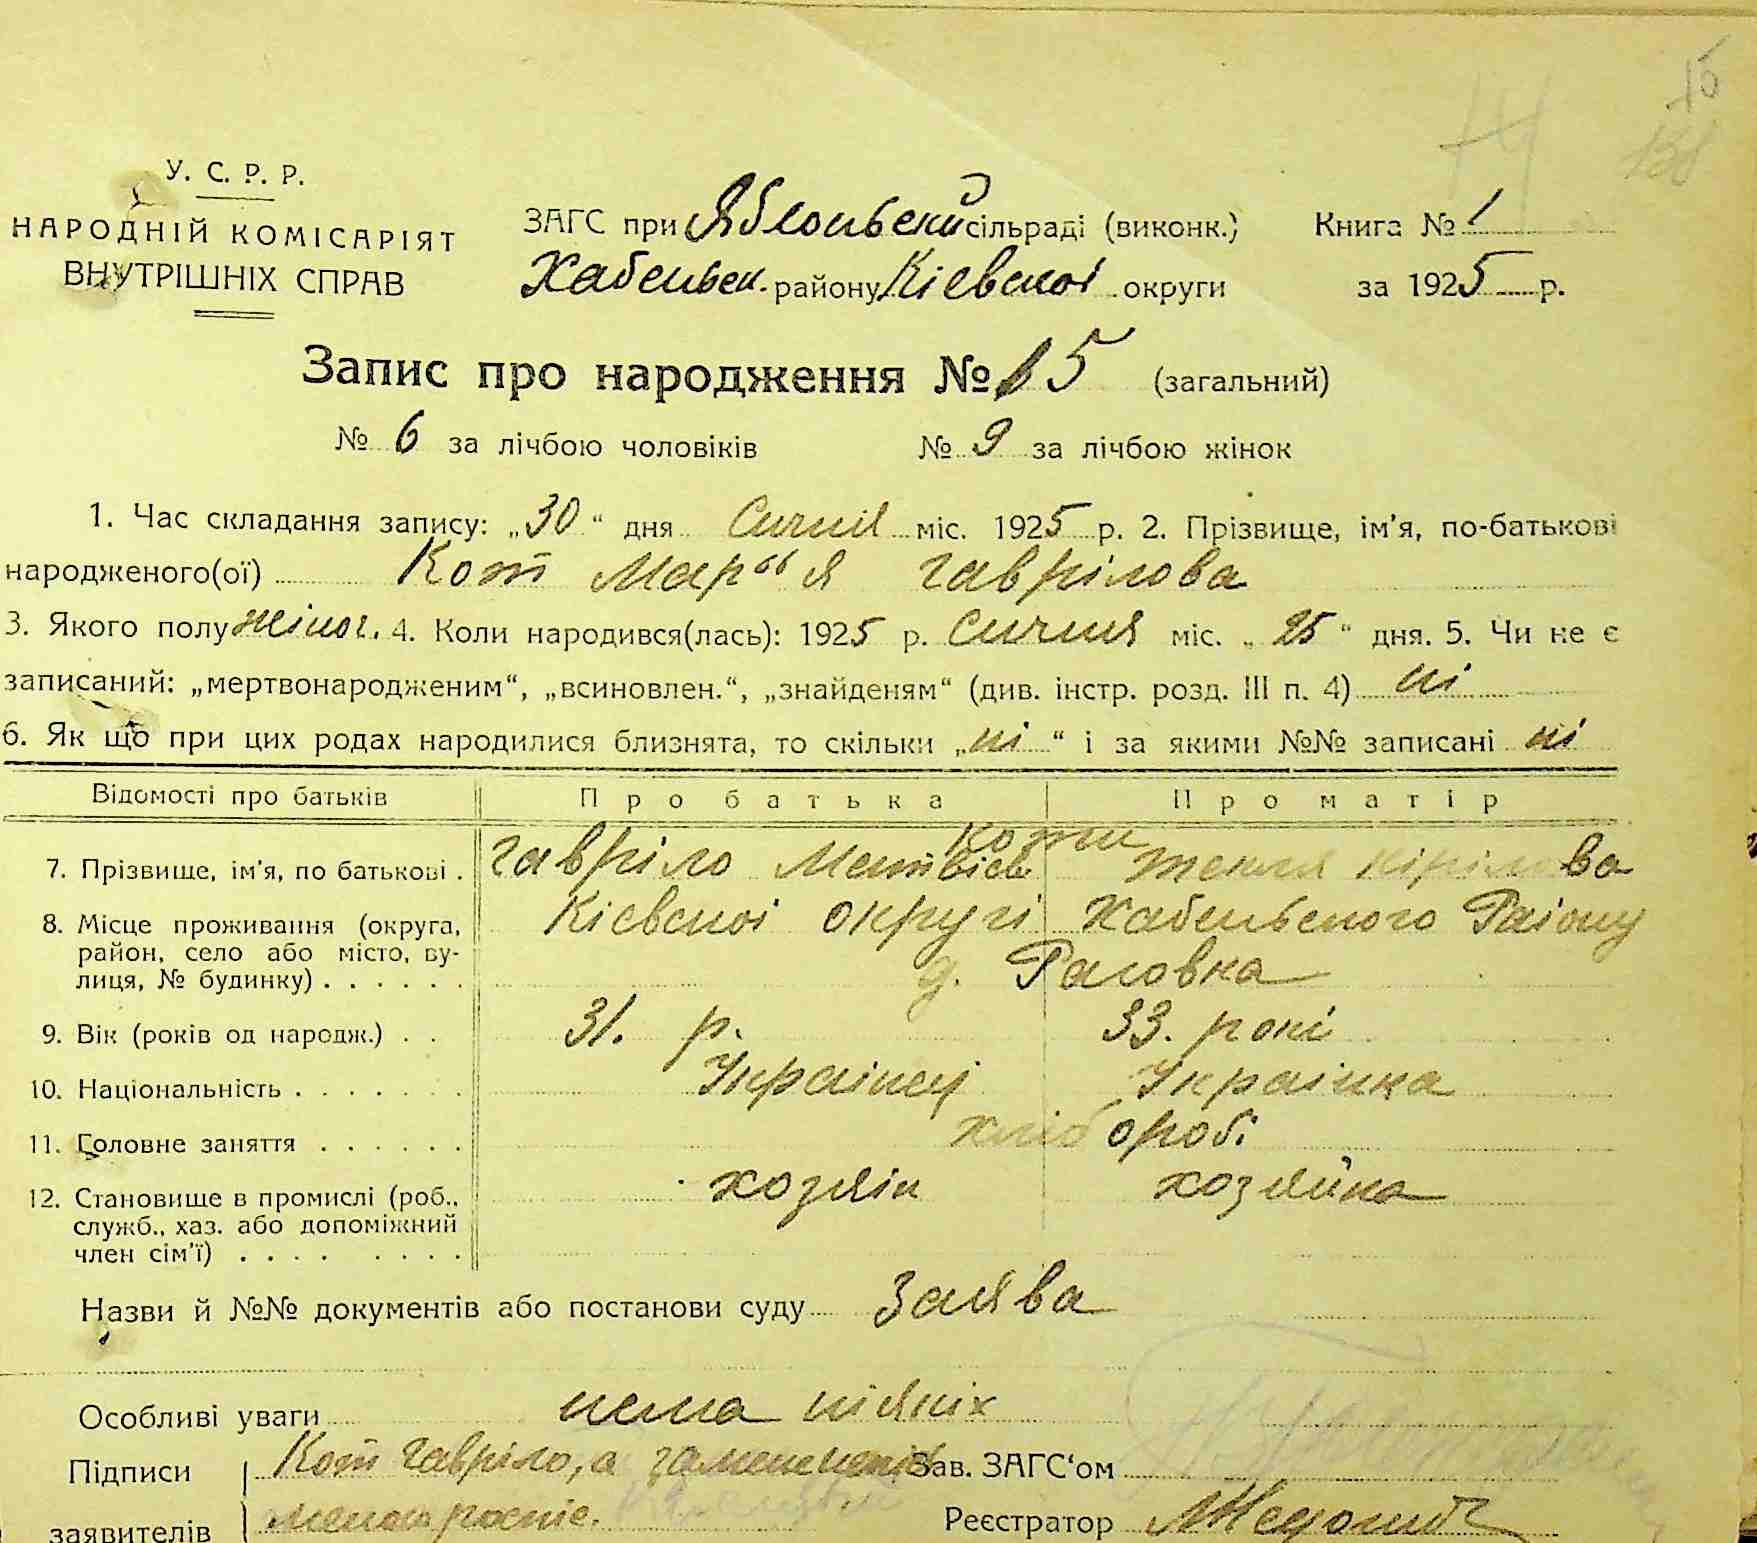 15
138
У. С. Р. Р.
НАРОДНІЙ КОМІСАРІЯТ
ВНУТРІШНІХ СПРАВ
ЗАГС при Яблоньскй сільраді (виконк.)
Хабеньск. району Кіевскоі округи
Книга № 1
за 1925 р.
Запис про народження № 15 (загальний)
№ 6 за лічбою чоловіків № 9 за лічбою жінок
1. Час складання запису: „30“ дня Сичня міс. 1925 р. 2. Прізвище, ім'я, по-батькові
народженого(ої) Кот Мар“я Гаврілова
3. Якого полу жіноч. 4. Коли народився(лась): 1925 р. Сичня міс. „25“ дня. 5. Чи не є
записаний: „мертвонародженим“, „всиновлен.“, „знайденям“ (див. інстр. розд. III п. 4) ні
6. Як що при цих родах народилися близнята, то скільки „ні“ і за якими №№ записані ні
Відомості про батьків Про батька Про матір
Коти
7. Прізвище, ім'я, по батькові . Гавріло Матвієв Текля Кірілова
8. Місце проживання (округа, Кіевскоі округі Хабеньского Раіону
район, село або місто, ву-
лиця, № будинку) . . . . . . д. Расовка
9. Вік (років од народж.) . . 31. р. 33. рокі
10. Національність . . . . . . . Українец Українка
11. Головне заняття . . . . . . хлібороbі
12. Становище в промислі (роб., хозяін хозяйка
служб., хаз. або допоміжний
член сім'ї) . . . . . . . .
Назви й №№ документів або постанови суду Заява
Особливі уваги нема ніякіх
Підписи Кот Гавріло, а Зав. ЗАГС‘ом
заявителів Реєстратор